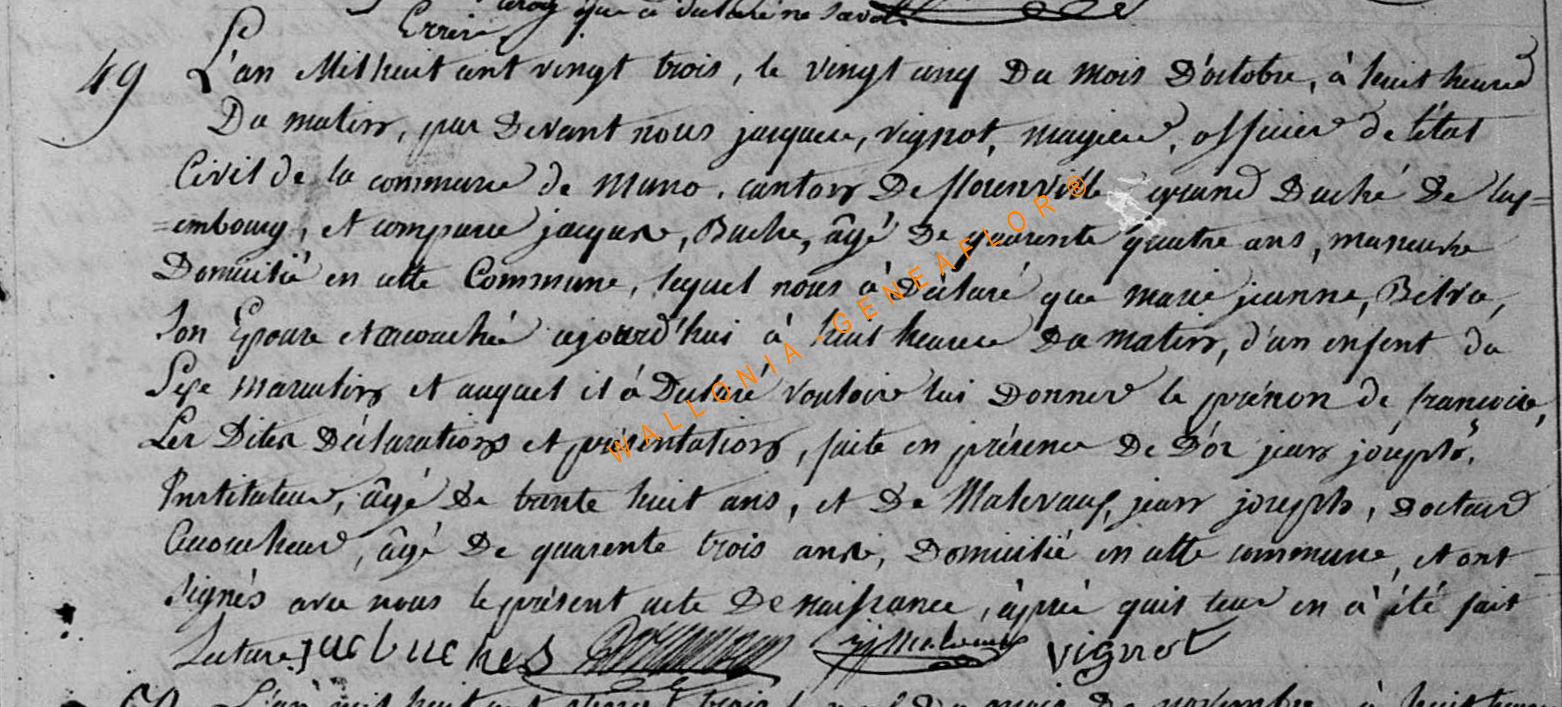 que à déclaré ne savoir
Ecrire,
49 L'an Mil huit cent vingt trois, le vingt cinq Du mois D'octobre, à huit heures
Du matin, par Devant nous jacques, vignot, mayeur, officier de l'état
Civil de la commune de Muno, canton De florenville grand Duché De lux=
=embourg, et comparu jacques, Buche, âgé De quarente quatre ans, maneuvre
Domicilié en cette Commune, lequel nous à Déclaré que marie jeanne, Bilva,
son Epouse et accouchée ajourd'hui à huit heures Du matin, d'un enfent du
Sexe masculin et auquel il à Déclaré vouloir lui Donner le prénon de francois,
Les Dites Déclarations et présentation, faite en présence De D'or jean joseph,
Instituteur, âgé De trante huit ans, et De Malevaux, jean joseph, Docteur
Accoucheur, âgé De quarente trois ans, Domicilié en cette commune, et ont
signés avec nous le présent acte De naissance, âprés quil leur en à été fait
Lecture. jac buches jjMalevaux vignot
L'an mil huit cent vingt trois, le Du mois De novembre, à huit heures
WALLONIA - GENEAFLOR ®